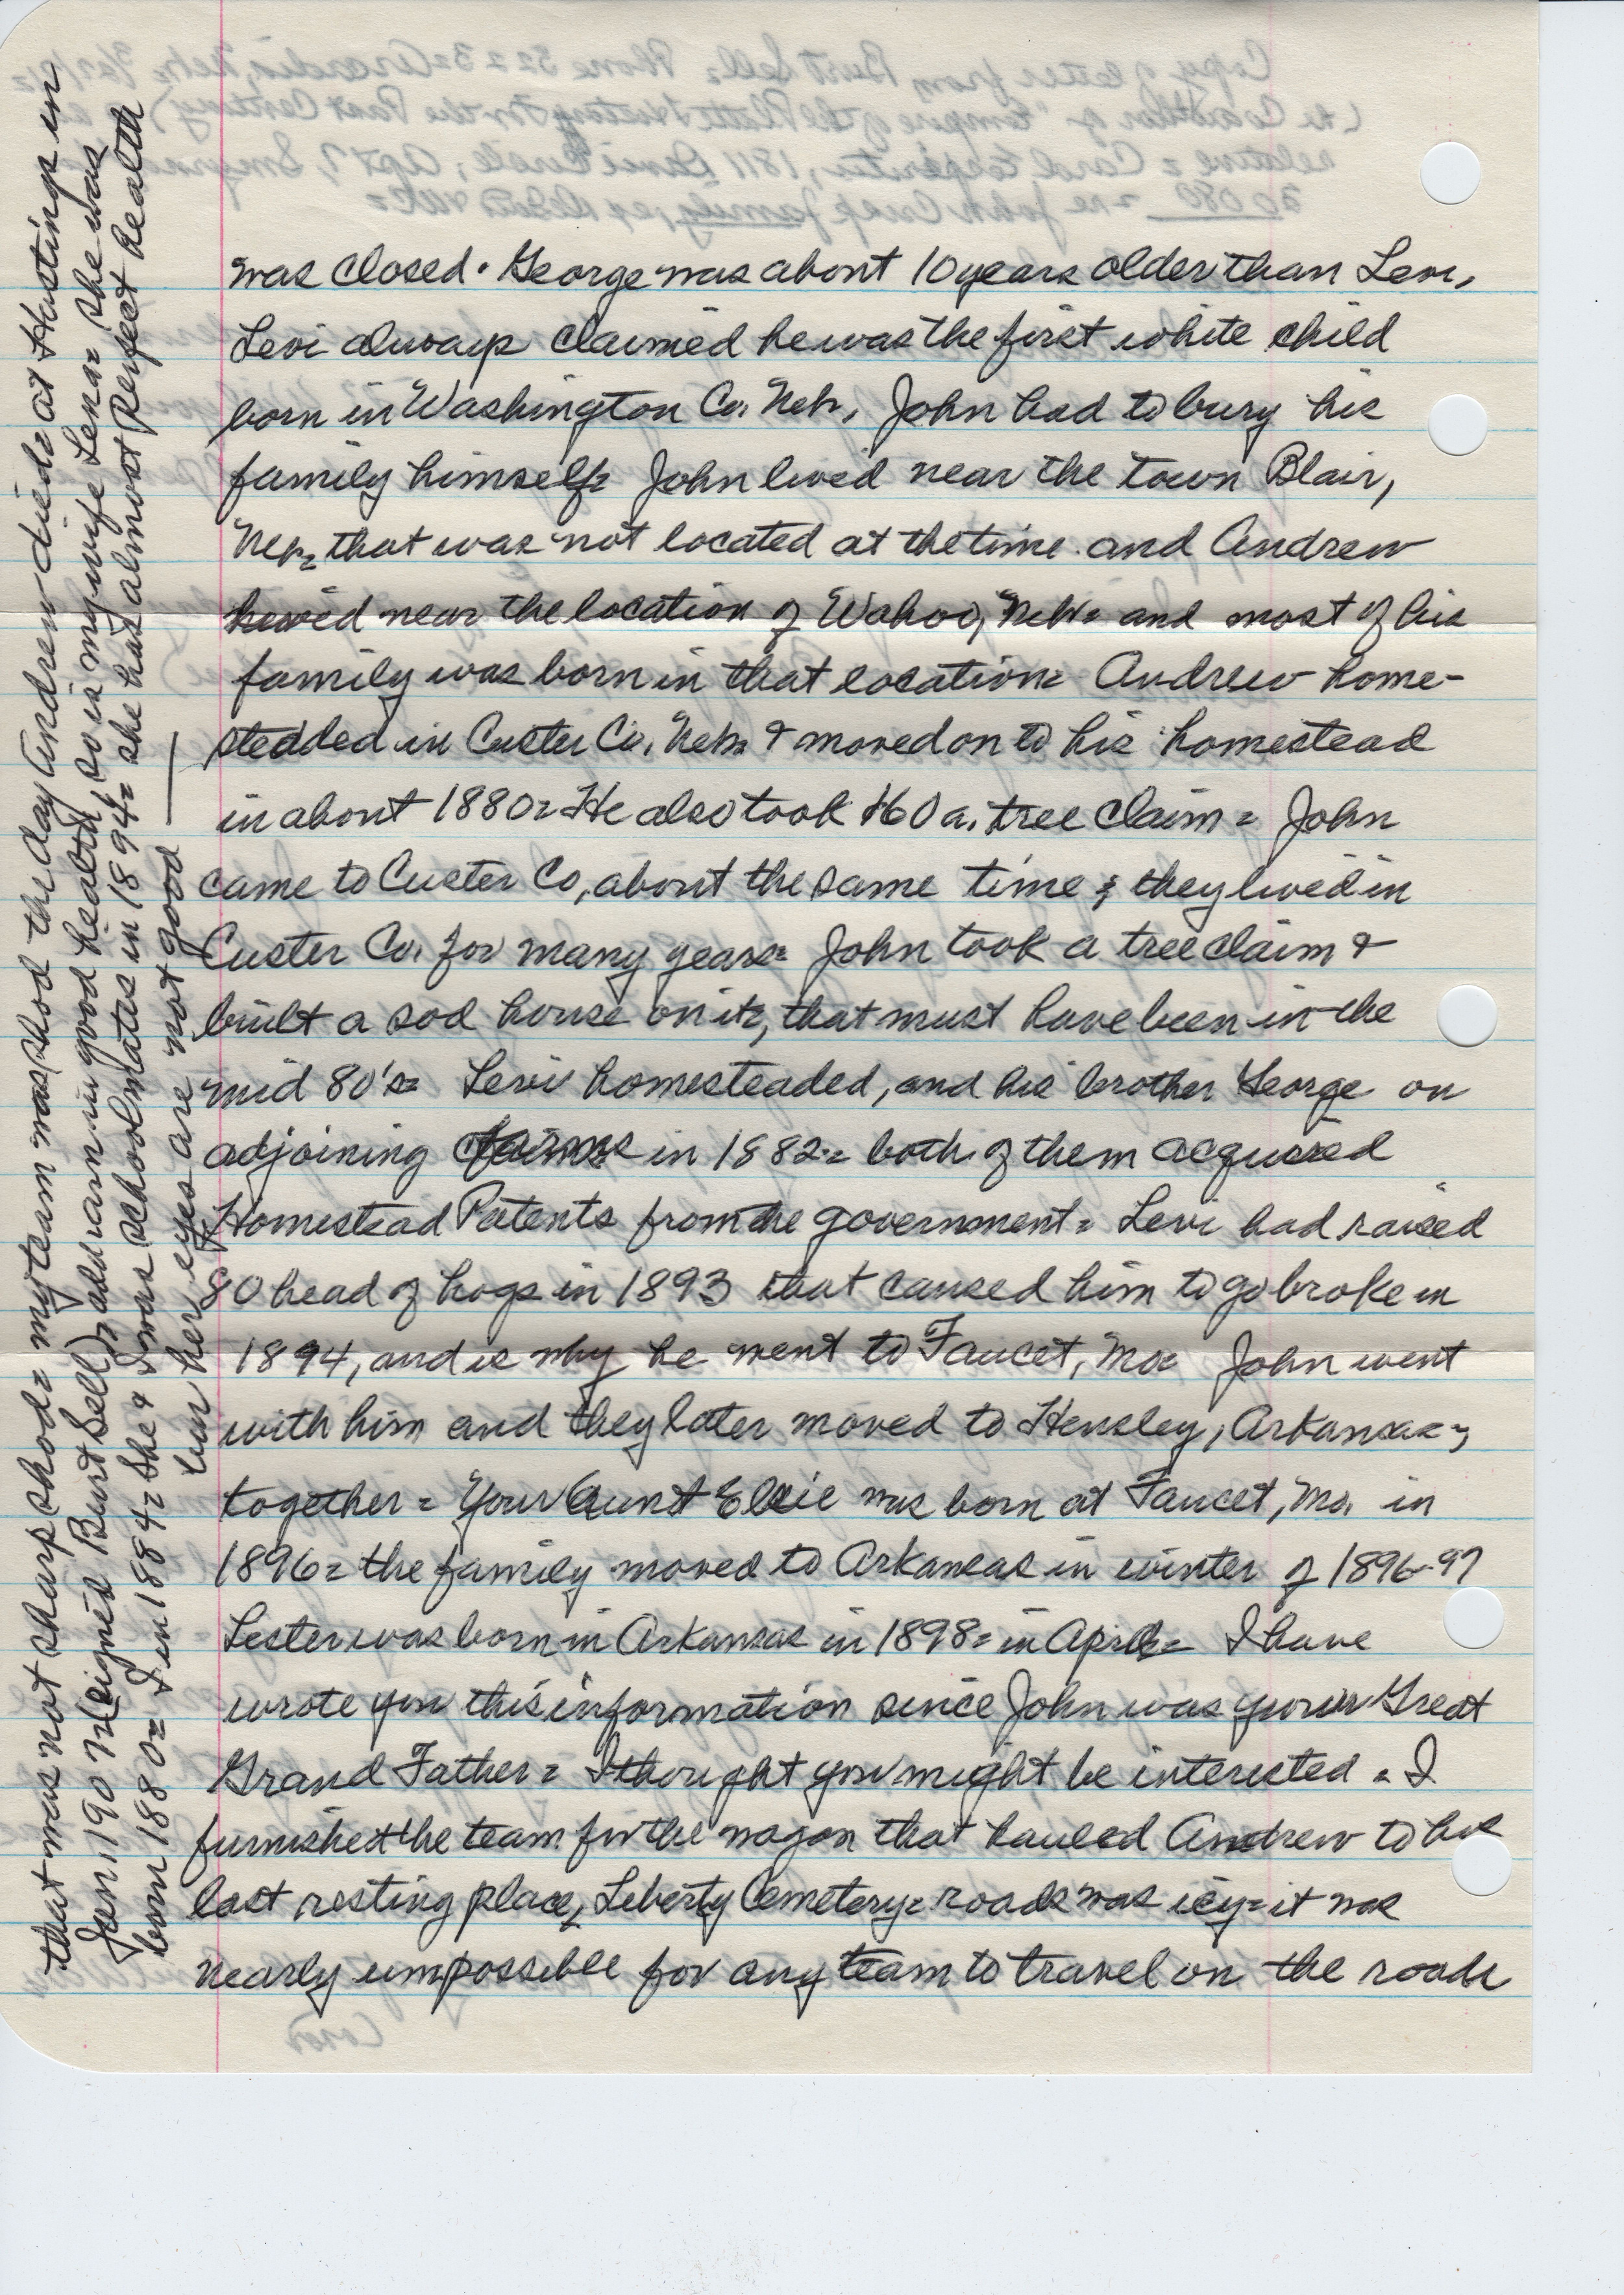 was closed. George was about 10 years older than Levi,
Levi always claimed he was the first white child
born in Washington Co. Neb, John had to bury his
family himself= John lived near the town Blair,
Neb= that was not located at the time. and Andrew
lived near the location of Wahoo, Neb= and most of his
family was born in that location= Andrew home-
stedded in Custer Co. Neb= & moved on to his homestead
in about 1880= He also took 160 a. tree claim= John
came to Custer Co, about the same time & they lived in
Custer Co. for many years= John took a tree claim &
built a sod house on it=, that must have been in the
mid 80's= Levi homesteaded, and his brother George on
adjoining in 1882= both of them acquired
Homestead Patents from the government= Levi had raised
80 head of hogs in 1893 that caused him to go broke in
1894, and is why he went to Faucet, Mo= John went
with him and they later moved to Hensley, Arkansas=,
together= Your Aunt Elsie was born at Faucet, Mo. in
1896= the family moved to Arkansas in winter of 1896-97
Lester was born in Arkansas in 1898= in April= I have
wrote you this information since John was your Great
Grand Father= I thought you might be interested= I
furnished the team for the wagon that hauled Andrew to his
last resting place, Liberty Cemetery= roads was icy= it was
nearly impossible for any team to travel on the roads
that was not sharp shod= my team was shod the day Andrew died= at Hastings in
Jan 1907= (signed Burt Sell) and I am in good health, so is my wife Lena= she was
born 1880= I in 1884= She & I was schoolmates in 1894= she has almost Perfect health
but her eyes are not good